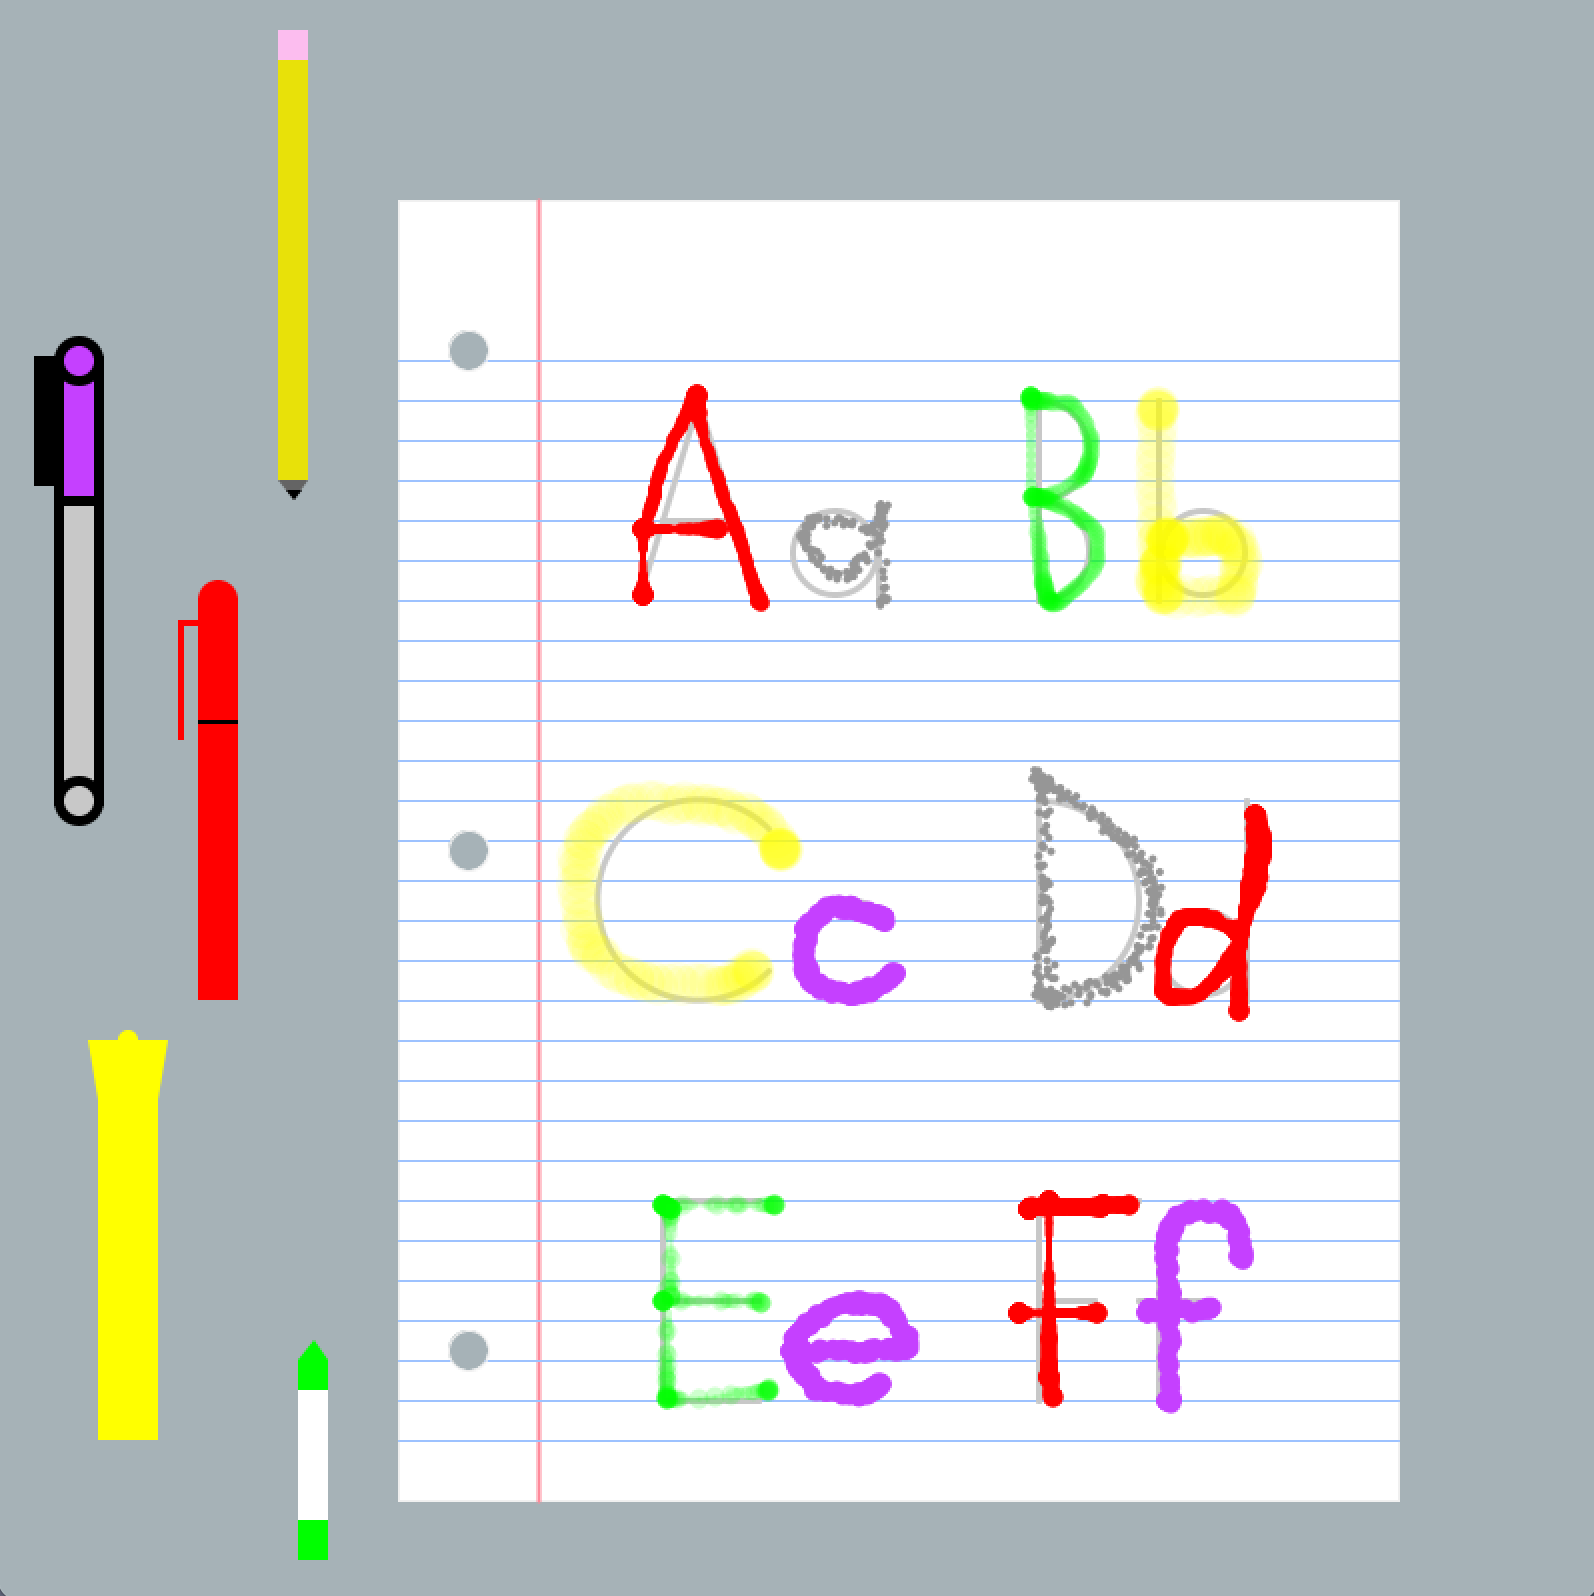 Aa Bb
Cc Dd
Ee Ff